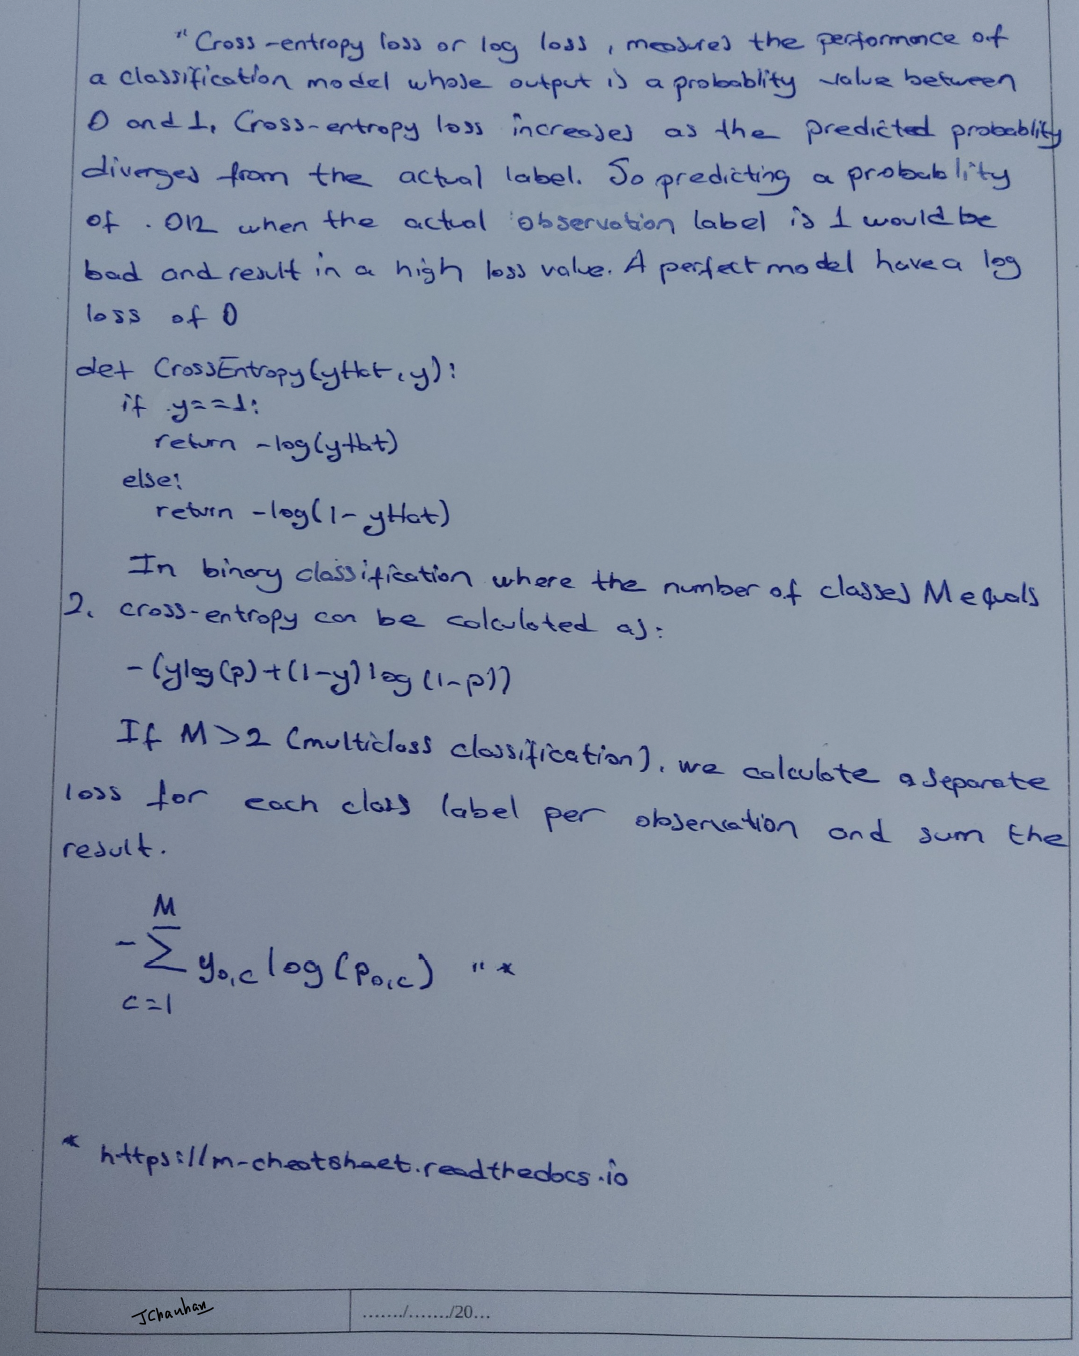 " Cross-entropy loss or log loss, measures the performance of
a classification model whose output is a probablity value between
0 and 1, Cross-entropy loss increases as the predicted probablity
diverges from the actual label. So predicting a probablity
of .012 when the actual observation label is 1 would be
bad and result in a high loss value. A perfect model have a log
loss of 0
def CrossEntropy(yHat, y):
if y==1:
return -log(yHat)
else:
return -log(1-yHat)
In binary classification where the number of classes M equals
2, cross-entropy can be calculated as:
-(ylog(p)+(1-y)log(1-p))
If M>2 (multiclass classification), we calculate a separate
loss for each class label per observation and sum the
result.
M
-∑ yo,c log(po,c) " *
c=1
* https://m-cheatshaet.readthedocs.io
JChauhan ......./......./20...